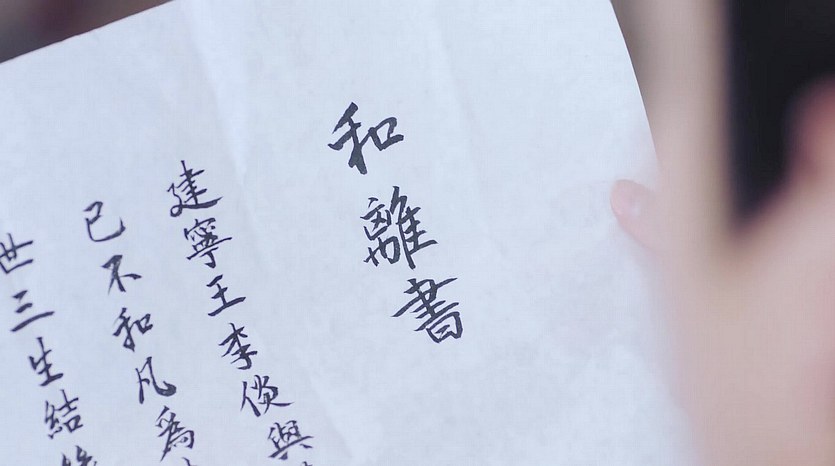 和離書
建寧王李倓與
已不和凡爲
世三生結